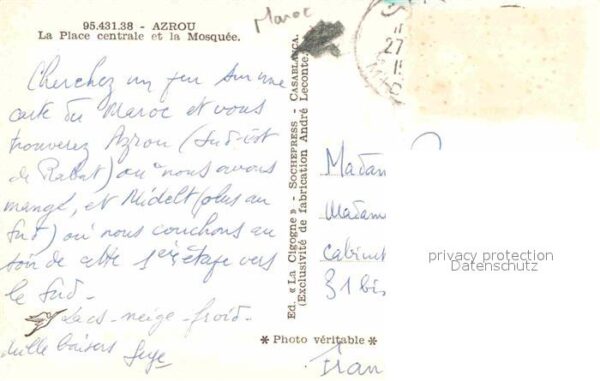 95.431.38 - AZROU
La Place centrale et la Mosquée.
Maroc
27
Cherchez un peu sur une
carte du Maroc et vous
trouverez Azrou (Sud-est
de Rabat) où nous avons
mangé, et Midelt (plus au
Sud) où nous couchons au
soir de cette 1ère étape vers
le Sud.
Lacs - neige - froid -
Mille baisers
Ed. « La Cigogne » - SOCHEPRESS - CASABLANCA.
(Exclusivité de fabrication André Leconte.
Madam
Madam
Cabinet
31 bis
Fran
privacy protection
Datenschutz
* Photo véritable *